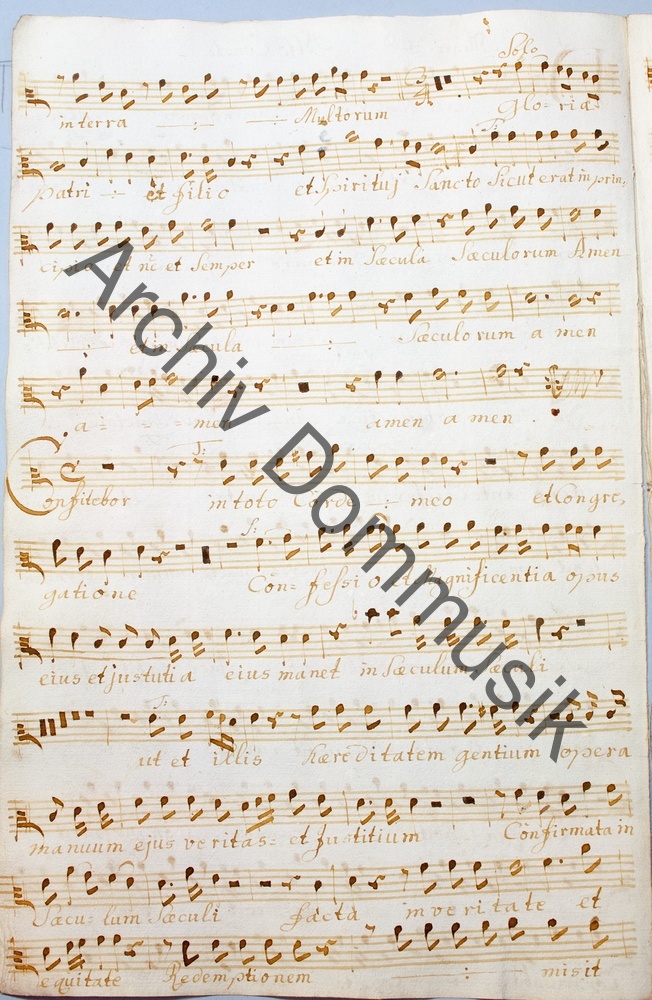 Solo
in terra Multorum Glo= ria
T:
patri et filio et Spirituj Sancto Sicut erat in prin,
cipio et nc et Semper et in Sæcula Sæculorum Amen
et in Sæcula Sæculorum a men
a = = = men amen a men .
T:
Confitebor in toto Corde meo et Congre,
S:
gatio ne Con= fessi o et Magnificentia opus
eius et justutia eius manet in Sæculum Sæculi
T:
ut et illis hæreditatem gentium opera
manuum ejus veritas= et Justitium Confirmata in
Sæcu= lum Sæculi facta in veritate et
equitate Redemptionem misit
Archiv Dommusik